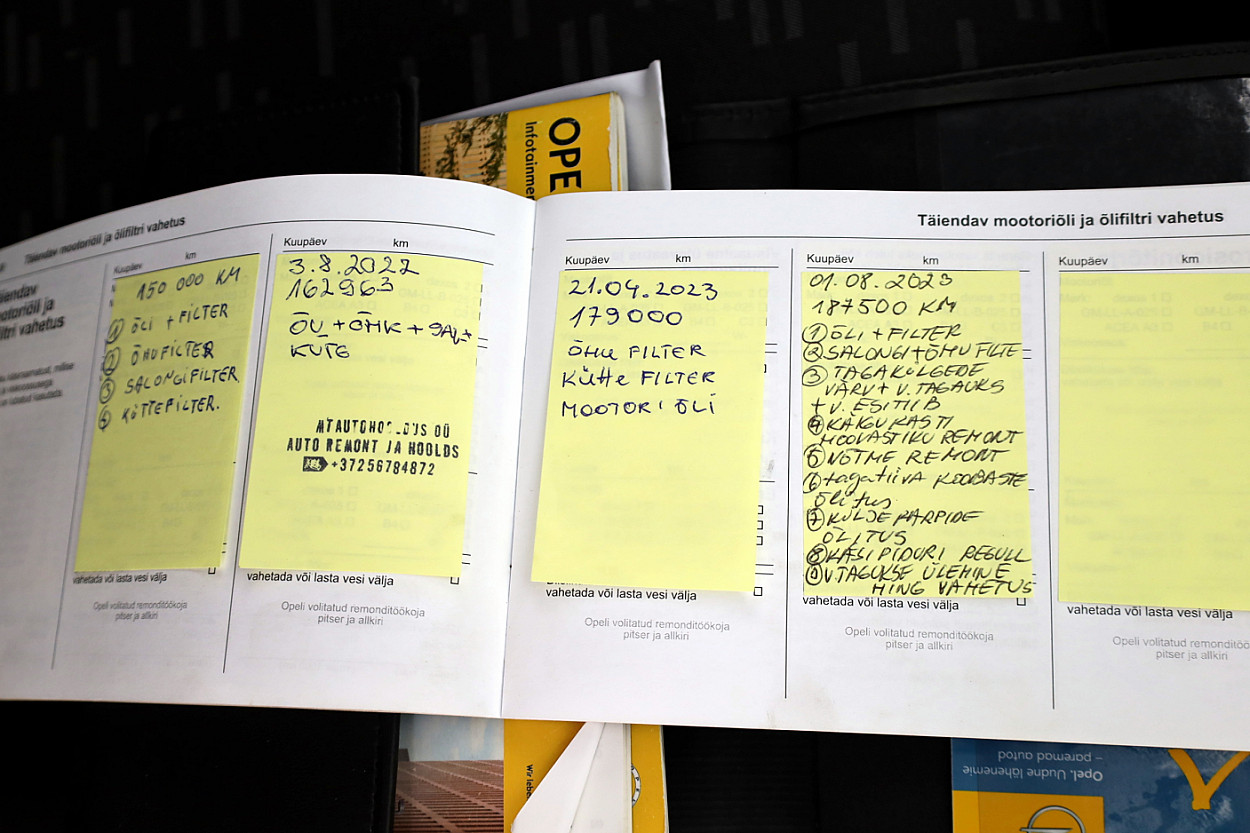 OPE
Infotainme
Täiendav mootoriõli ja õlifiltri vahetus
Kuupäev km
150 000 KM
① ÕLI + FILTER
② ÕHUFILTER
③ SALONGIFILTER.
④ KÜTTEFILTER.
vahetada või lasta vesi välja
Opeli volitatud remonditöökoja
pitser ja allkiri
Kuupäev km
3.8.2022
162963
KUTE
AUTO REMONT JA HOOLDS
+37256784872
vahetada või lasta vesi välja
Opeli volitatud remonditöökoja
pitser ja allkiri
Täiendav mootoriõli ja õlifiltri vahetus
Kuupäev km
21.04.2023
179000
ÕHU FILTER
KÜTTE FILTER
MOOTORI ÕLI
vahetada või lasta vesi välja
Opeli volitatud remonditöökoja
pitser ja allkiri
Kuupäev km
01.08.2023
187500 KM
① ÕLI + FILTER
② SALONGI + ÕHU FILTE
③ TAGAKÜLGEDE
VÄRV + V. TAGAUKS
+ V. ESITIIB
④ KÄIGUKASTI
HOOVASTIKU REMONT
⑤ NÕTME REMONT
⑥ tagatiiva KOOBASTE
õlitus
⑦ KÜLJEKARPIDE
ÕLITUS
⑧ KÄSIPIDURI REGULL
⑨ V.TAGUKSE ÜLEMINE
HING VAHETUS
vahetada või lasta vesi välja
Opeli volitatud remonditöökoja
pitser ja allkiri
Kuupäev km
vahetada või lasta vesi välja
Opeli volitatud remonditöökoja
pitser ja allkiri
Wir lebe
Opel. Uudne lähenemie
– paremad autod